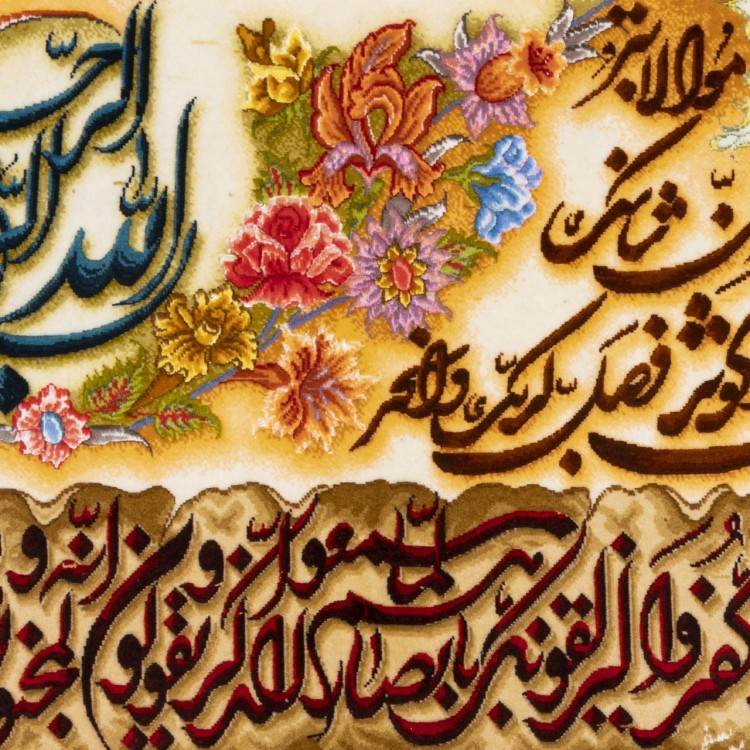 الله الرح
هو الابتر
ن شانئك
كوثر فصل لربك وانحر
كفروا ليزلقونك بابصارهم لما سمعوا الذكر و يقولون انه لمجنون و